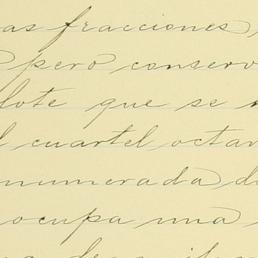 as fracciones,
pero conserv
lote que se
l cuartel octav
numerada d
ocupa una